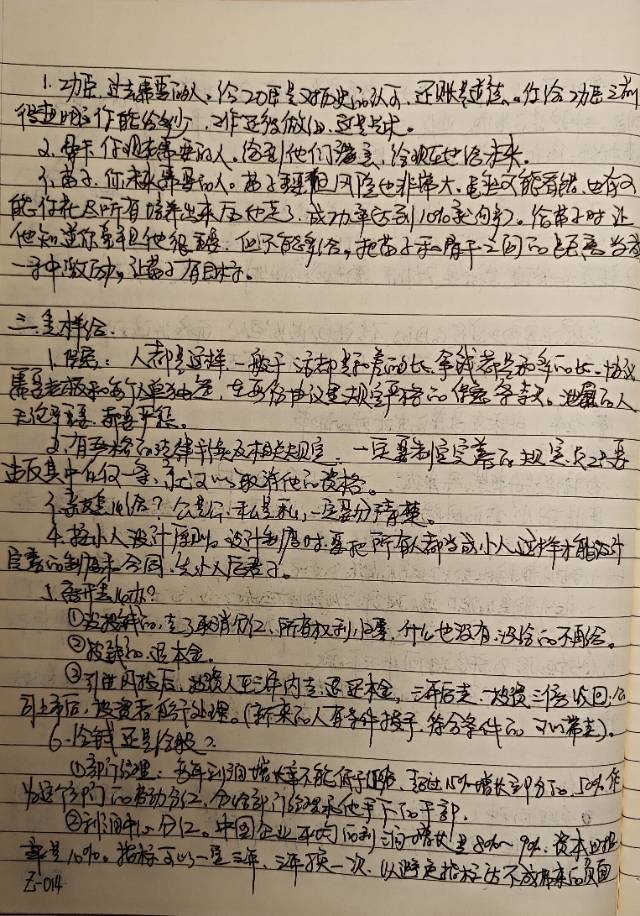 1. 功臣,过去需要的人。给功臣是对历史的认可,还账是道德。在给功臣之前
得查明你能给多少,工作还得做细,这是艺术。
2. 骨干,你现在需要的人。给到他们满意,给现在也给未来。
3. 苗子,你未来需要的人。苗子重要但风险也非常大,既可能看错,也有可
能你花尽所有培养出来后他走了,成功率达到10%就可以了。给苗子时让
他知道你看重他很重要,但不能多给,把苗子和骨干之间的距离当成
一种激励,让苗子有目标。
三、怎样给
1. 保密:人都是这样,一般干活都是和差的比,拿钱都是和多的比。协议
需要老板和每个人单独签,在股份协议里规定严格的保密条款。泄露的人
无论多重要,都要严惩。
2. 有严格的法律制度及相关规定,一定要制定完善的规定,只要
违反其中任何一条,就可以取消他的资格。
3. 亲戚怎么给?公是公,私是私,一定要分清楚。
4. 按小人设计原则。设计制度时要把所有人都当成小人,这样才能设计
完善的制度和合同,先小人后君子。
5. 离开怎么办?
①没投钱的,走了取消分红,所有权利归零,什么也没有,没给的不再给。
②投钱的,退本金。
③引进风投后,投资人三年内走,退还本金,三年后走,投资三倍收回;公
司上市后,按资若干处理。(新来的人有条件接手,符合条件的可以带走)。
6. 给钱还是给股?
①部门经理:每年利润增长率不能低于15%,超过15%增长部分的50%作
为这个部门的劳动分红,分给部门经理和他手下的干部。
②利润中心分红。中国企业平均的利润增长是8%~9%,资本回报
率是10%。指标可以一定三年,三年换一次,以避免指标达不成带来的负面
Z-014